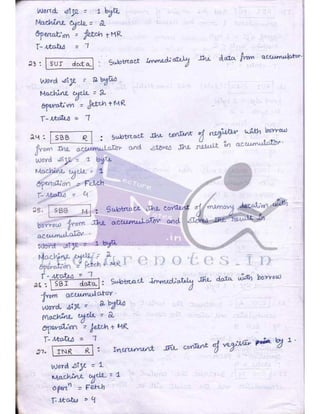 word size = 1 byte
Machine cycle = 2
Operation = fetch + MR
T-states = 7
23: SUI data : Subtract immediately the data from accumulator.
word size = 2 bytes.
Machine cycle = 2
operation = fetch + MR
T-states = 7
24: SBB R : subtract the content of register with borrow
from the accumulator and stores the result in accumulator.
word size = 1 byte
Machine cycle = 1
operation = Fetch
T-states = 4
25. SBB M : Subtract the content of memory location with
borrow from the accumulator and stores the result in
accumulator.
word size = 1 byte
Machine cycle = 2
operation = fetch + MR
T-states = 7
26: SBI data : Subtract immediately the data with borrow
from accumulator.
word size = 2 bytes
Machine cycle = 2
operation = fetch + MR
T-states = 7
27. INR R : Increment the content of register by 1.
word size = 1
Machine cycle = 1
opern = Fetch
T-states = 4